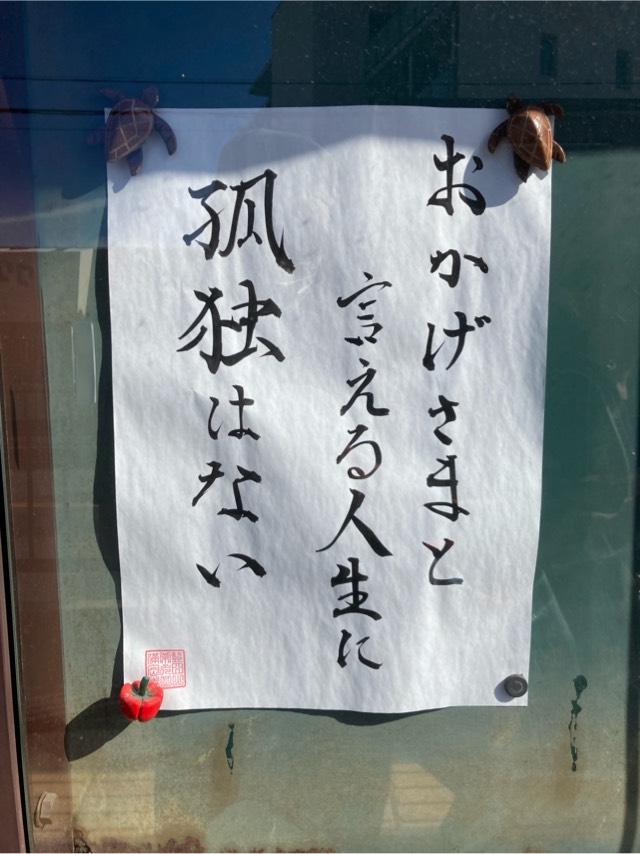 おかげさまと
言える人生に
孤独はない